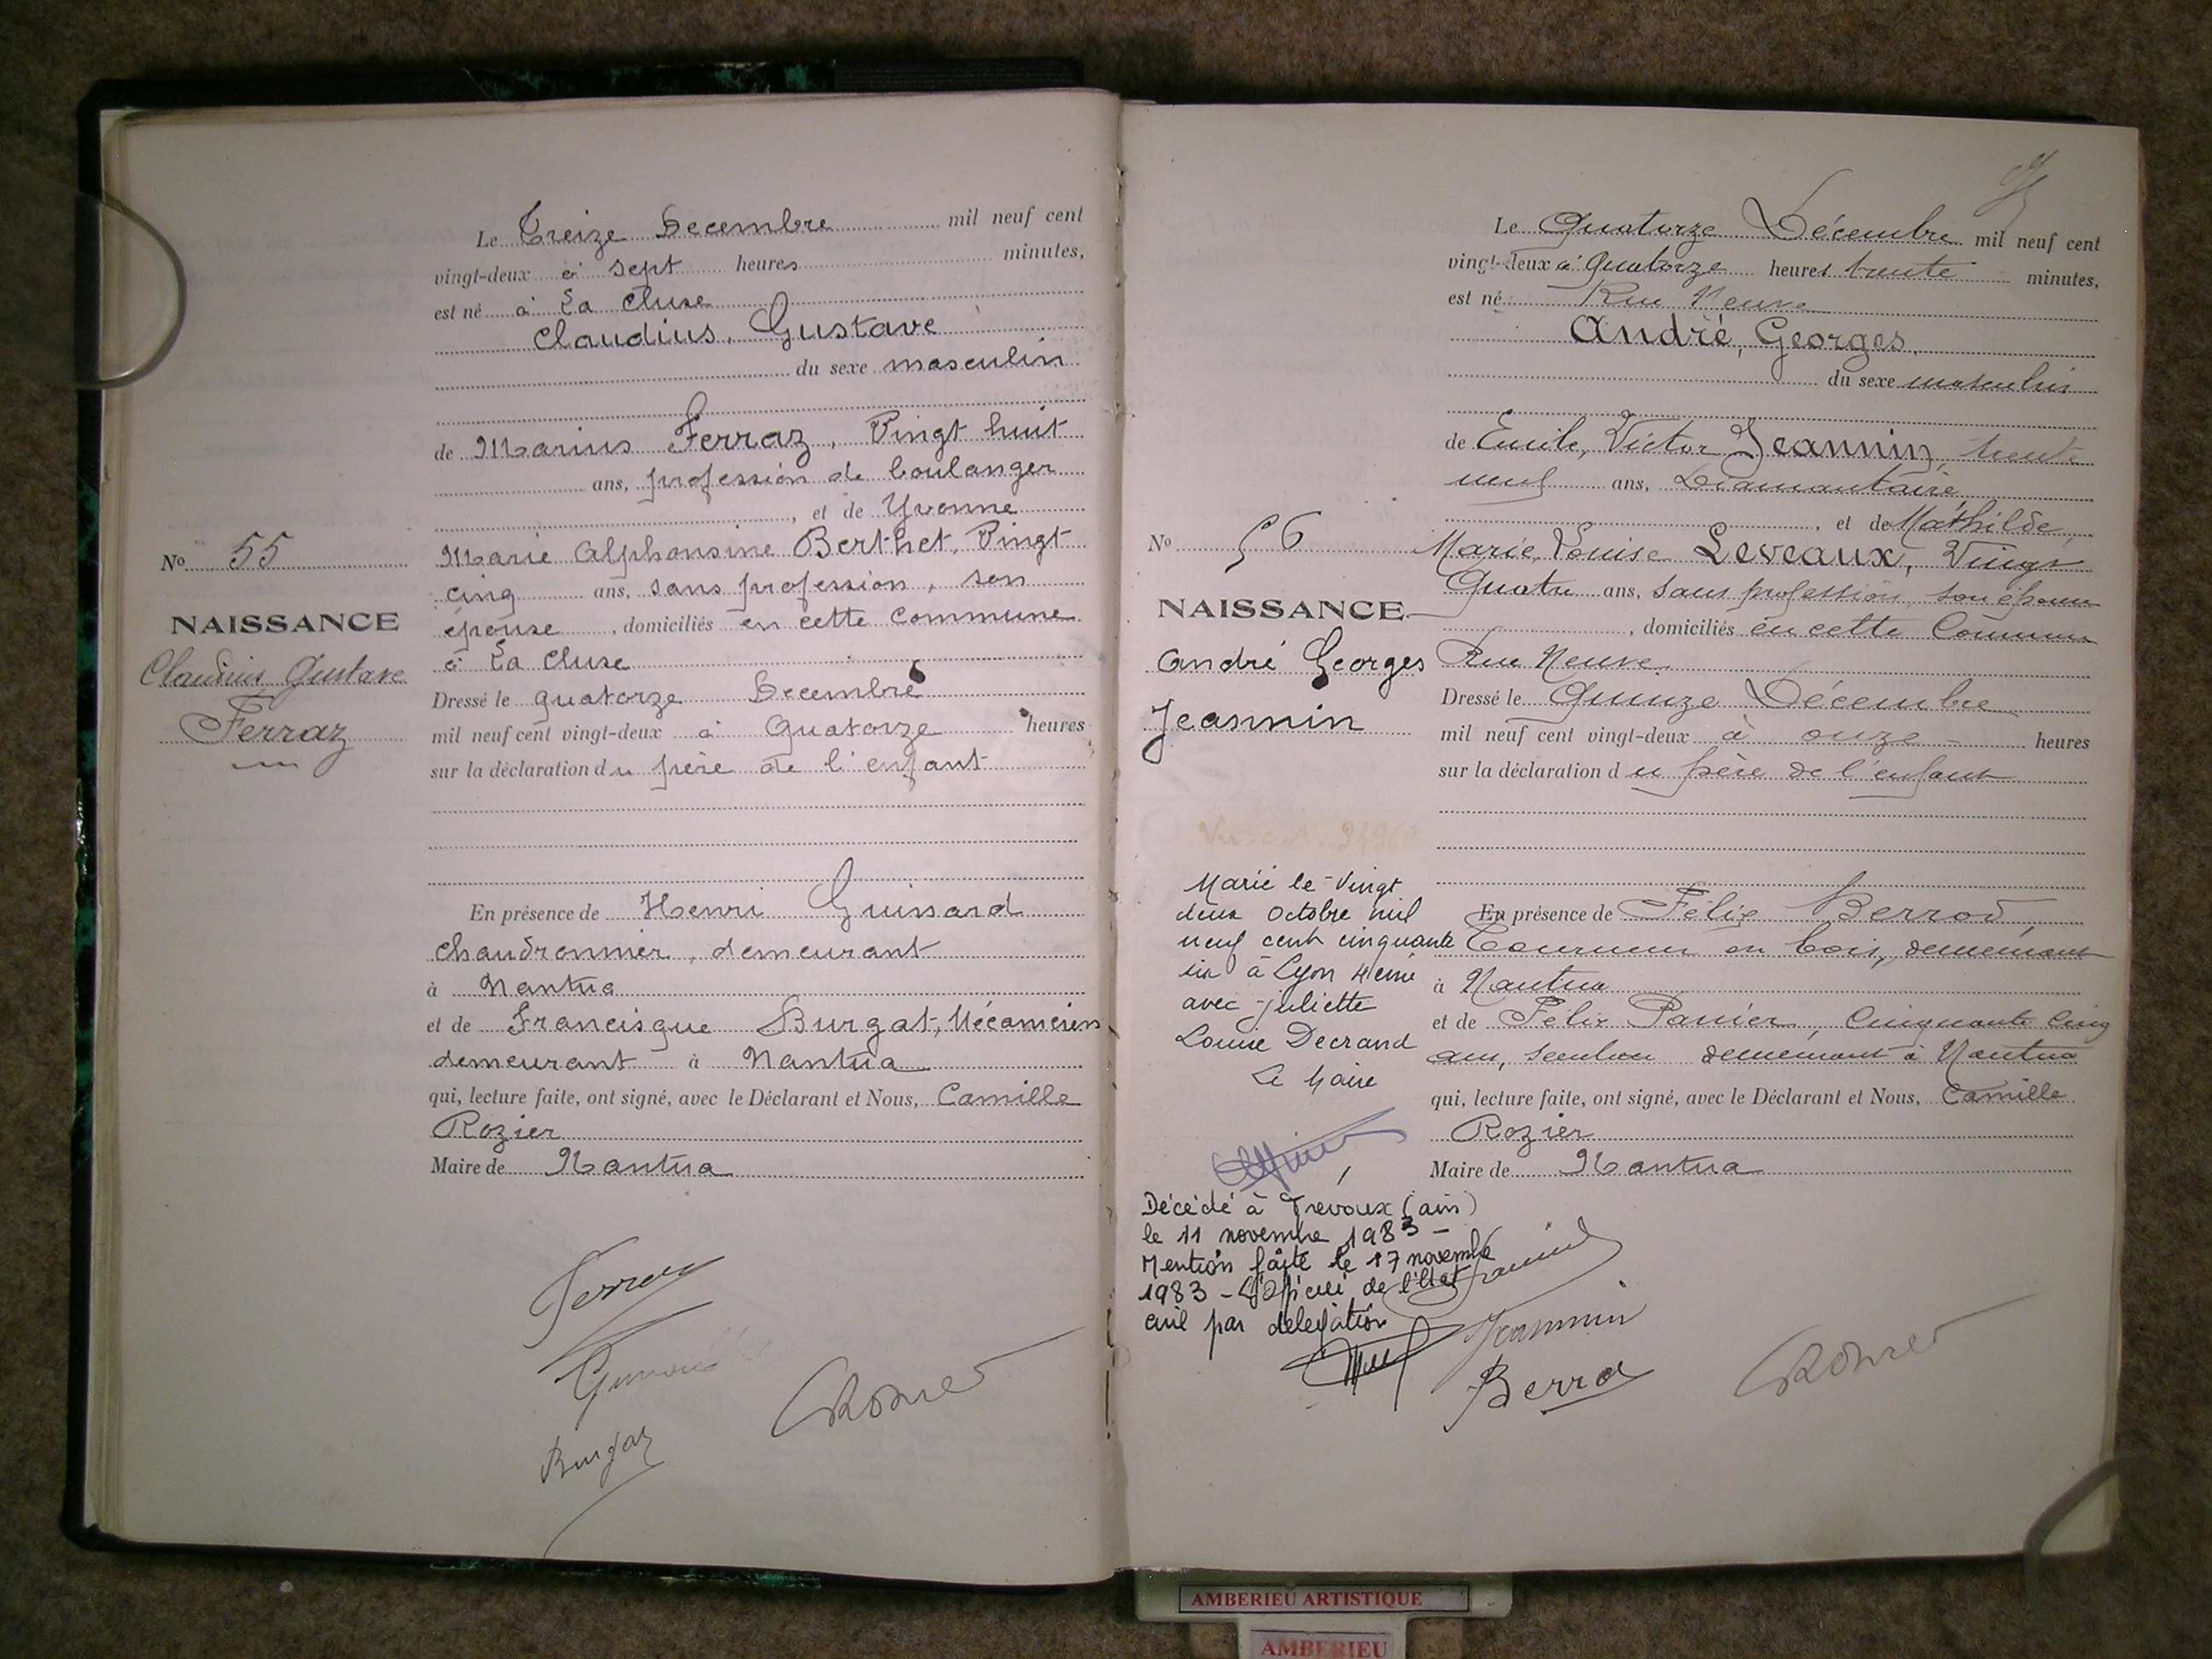 Le Treize Decembre mil neuf cent
vingt-deux à sept heures minutes,
est né à La Cluse
Claudius, Gustave
du sexe masculin
de Marius Ferraz, Vingt huit
ans, profession de boulanger
, et de Yvonne
Marie Alphonsine Berthet, Vingt
cinq ans, sans profession, son
épouse , domiciliés en cette commune
à La Cluse
Dressé le quatorze Decembre
mil neuf cent vingt-deux à Quatorze heures
sur la déclaration du père de l'enfant
En présence de Henri Guissard
chaudronnier, demeurant
à Nantua
et de Francisque Burgat, Mécanicien
demeurant à Nantua
qui, lecture faite, ont signé, avec le Déclarant et Nous, Camille
Rozier
Maire de Nantua
No 55
NAISSANCE
Claudius Gustave
Ferraz
Ferraz
Burgat
Rozier
Le Quatorze Décembre mil neuf cent
vingt-deux à Quatorze heures trente minutes,
est né Rue Neuve
André, Georges,
du sexe masculin
de Emile, Victor Jeannin, trente
neuf ans, Diamantaire
, et de Mathilde,
Marie, Louise Leveaux, Vingt
Quatre ans, sans profession, son épouse
, domiciliés en cette Commune
Rue Neuve
Dressé le Quinze Décembre
mil neuf cent vingt-deux à onze heures
sur la déclaration du père de l'enfant
En présence de Félix Berrod,
Tourneur en bois, demeurant
à Nantua
et de Félix Panier, Cinquante Cinq
ans, demeurant à Nantua
qui, lecture faite, ont signé, avec le Déclarant et Nous, Camille
Rozier
Maire de Nantua
No 56
NAISSANCE
André Georges
Jeannin
Marié le Vingt
deux octobre mil
neuf cent cinquante
six à Lyon 4eme
avec Juliette
Louise Decrand
Le Maire
Décédé à Trevoux (ain)
le 11 novembre 1983 -
Mention faite le 17 novembre
1983 - L'Officier de l'Etat
civil par délégation
Jeannin
Berrod
Rozier
AMBERIEU ARTISTIQUE
AMBERIEU